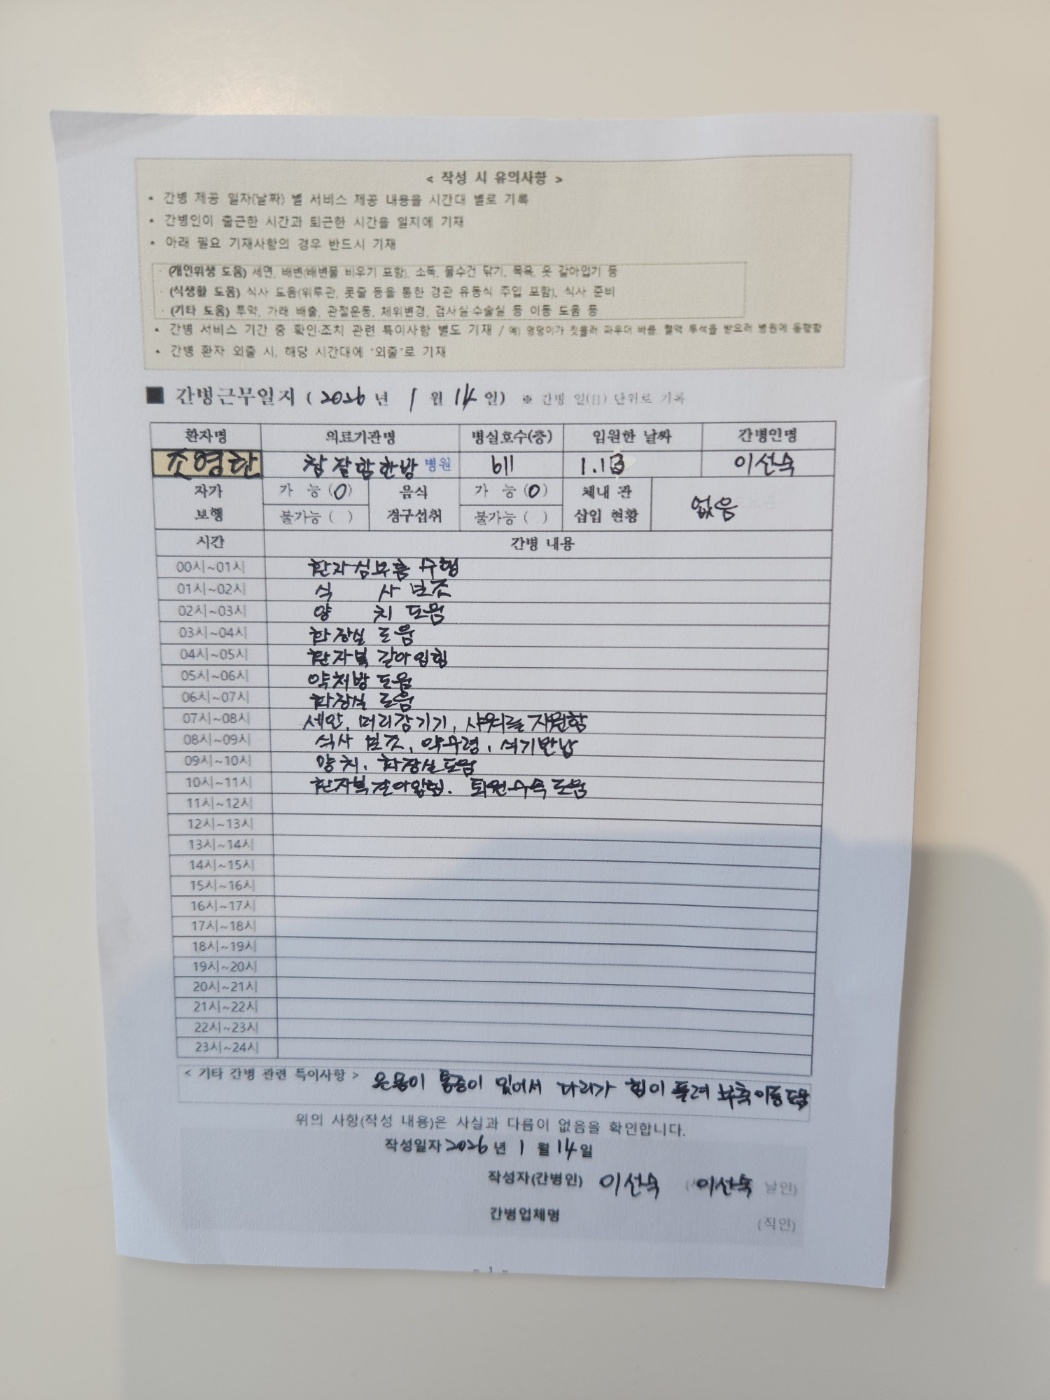 < 작성 시 유의사항 >
• 간병 제공 일자(날짜) 별 서비스 제공 내용을 시간대 별로 기록
• 간병인이 출근한 시간과 퇴근한 시간을 일지에 기재
• 아래 필요 기재사항의 경우 반드시 기재
· (개인위생 도움) 세면, 배변(배변물 비우기 포함), 소독, 물수건 닦기, 목욕, 옷 갈아입기 등
· (식생활 도움) 식사 도움(위루관, 콧줄 등을 통한 경관 유동식 주입 포함), 식사 준비
· (기타 도움) 투약, 가래 배출, 관절운동, 체위변경, 검사실·수술실 등 이동 도움 등
• 간병 서비스 기간 중 확인·조치 관련 특이사항 별도 기재 / 예) 엉덩이가 짓물러 파우더 바름, 혈액 투석을 받으러 병원에 동행함
• 간병 환자 외출 시, 해당 시간대에 "외출"로 기재
■ 간병근무일지 ( 2026 년 1 월 14 일) ※ 간병 일(日) 단위로 기록
환자명 의료기관명 병실호수(층) 입원한 날짜 간병인명
조영란 참잘함한방 병원 611 1.13 이선숙
자가 보행 가 능 (O) 불가능 ( ) 음식 경구섭취 가 능 (O) 불가능 ( ) 체내 관 삽입 현황 없음
시간 간병 내용
00시~01시 환자심부름 수행
01시~02시 식 사 보조
02시~03시 양 치 도움
03시~04시 화장실 도움
04시~05시 환자복 갈아입힘
05시~06시 약처방 도움
06시~07시 화장실 도움
07시~08시 세안, 머리감기기, 샤워를 지원함
08시~09시 식사 보조, 약수령, 식기반납
09시~10시 양치, 화장실도움
10시~11시 환자복갈아입힘. 퇴원수속도움
11시~12시
12시~13시
13시~14시
14시~15시
15시~16시
16시~17시
17시~18시
18시~19시
19시~20시
20시~21시
21시~22시
22시~23시
23시~24시
< 기타 간병 관련 특이사항 > 온몸이 통증이 있어서 다리가 힘이 풀려 부축이동도움
위의 사항(작성 내용)은 사실과 다름이 없음을 확인합니다.
작성일자 2026 년 1 월 14 일
작성자(간병인) 이선숙 이선숙 날인)
간병업체명 (직인)
- 1 -